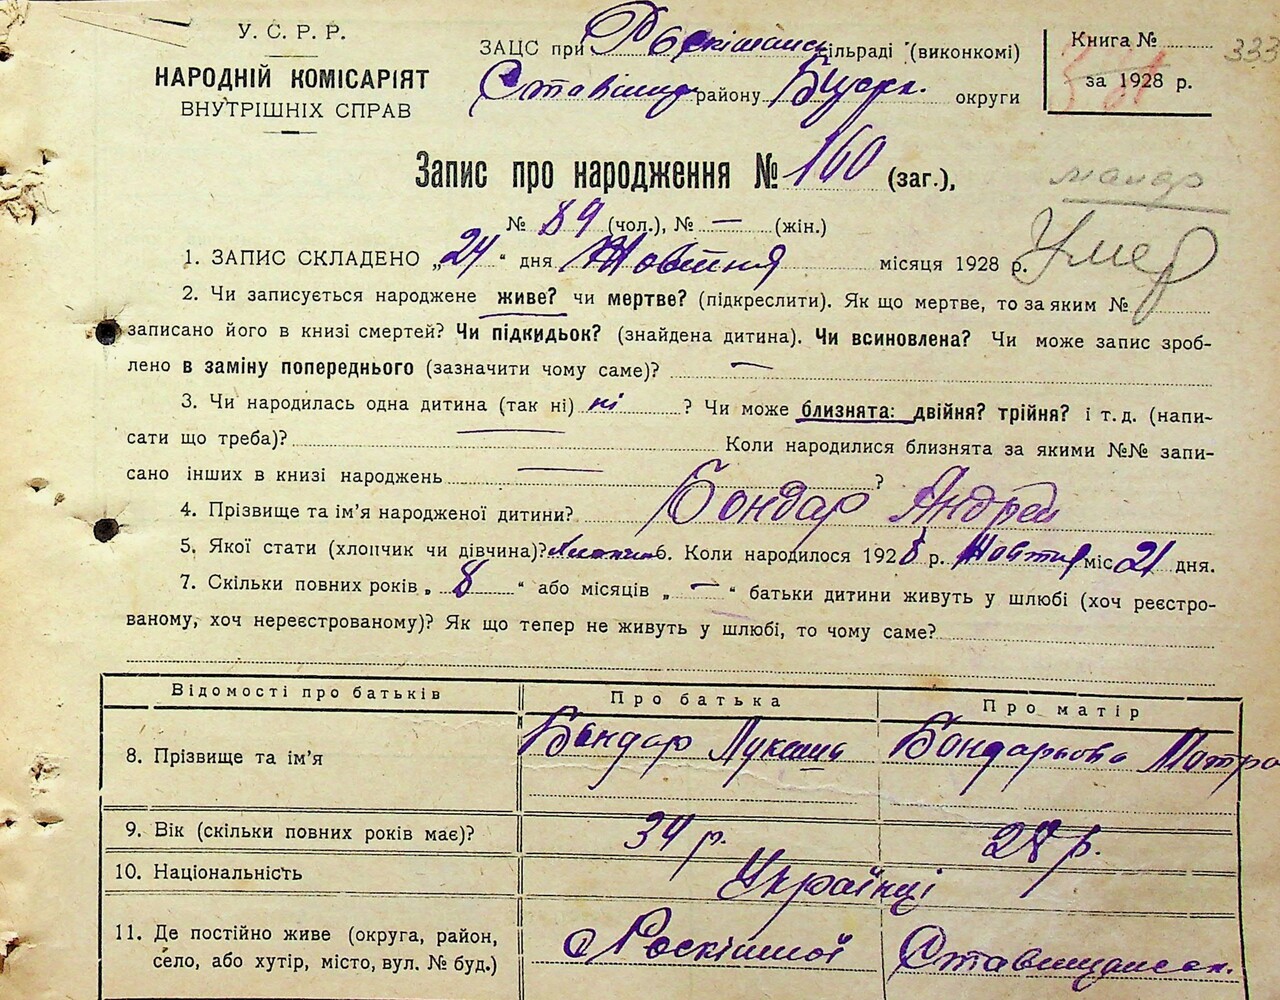 У. С. Р. Р.
НАРОДНІЙ КОМІСАРІЯТ
ВНУТРІШНІХ СПРАВ
ЗАЦС при Розкішанск сільраді (виконкомі)
Ставищ району Б.Церк. округи
Книга №
за 1928 р.
333
Запис про народження № 160 (заг.),
№ 89 (чол.), № — (жін.)
Умер
1. ЗАПИС СКЛАДЕНО „24“ дня Жовтня місяця 1928 р.
2. Чи записується народжене живе? чи мертве? (підкреслити). Як що мертве, то за яким №
записано його в книзі смертей? Чи підкидьок? (знайдена дитина). Чи всиновлена? Чи може запис зроб-
лено в заміну попереднього (зазначити чому саме)? —
3. Чи народилась одна дитина (так ні) ні ? Чи може близнята: двійня? трійня? і т. д. (напи-
сати що треба)? Коли народилися близнята за якими №№ запи-
сано інших в книзі народжень — ?
4. Прізвище та ім'я народженої дитини? Бондар Андрей
5. Якої стати (хлопчик чи дівчина)? Хлопчик 6. Коли народилося 1928 р. Жовтня міс 21 дня.
7. Скільки повних років „ 8 “ або місяців „ — “ батьки дитини живуть у шлюбі (хоч реєстро-
ваному, хоч нереєстрованому)? Як що тепер не живуть у шлюбі, то чому саме?
Відомості про батьків Про батька Про матір
8. Прізвище та ім'я Бондар Лукаш Бондарьова Мотро
9. Вік (скільки повних років має)? 34 р. 28 р.
10. Національність Українці
11. Де постійно живе (округа, район,
село, або хутір, місто, вул. № буд.)